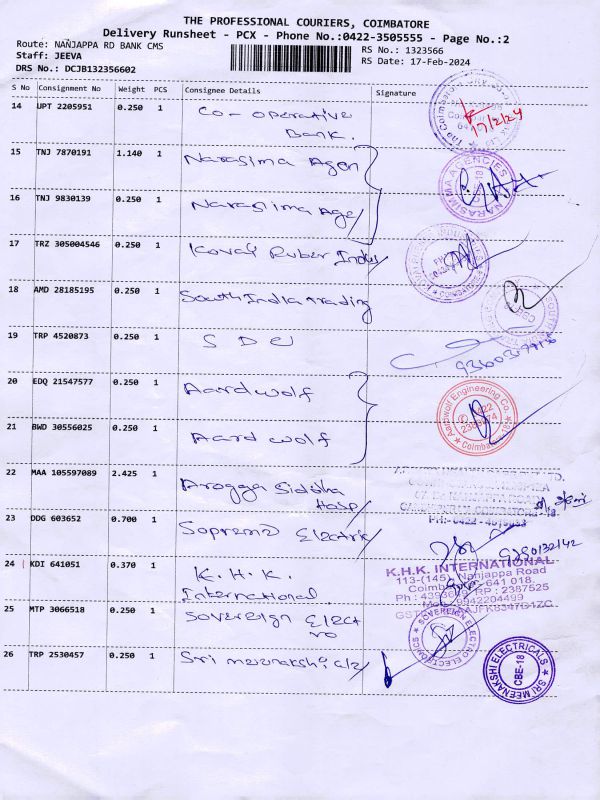 THE PROFESSIONAL COURIERS, COIMBATORE
Delivery Runsheet - PCX - Phone No.:0422-3505555 - Page No.:2
Route: NANJAPPA RD BANK CMS
RS No.: 1323566
Staff: JEEVA
RS Date: 17-Feb-2024
DRS No.: DCJB132356602
S No Consignment No Weight PCS Consignee Details Signature
14 UPT 2205951 0.250 1 Co-operative
Bank.
17/2/24
15 TNJ 7870191 1.140 1 Narasima Agen
NARASIMMA AGENCIES
16 TNJ 9830139 0.250 1 Narasima Age
17 TRZ 305004546 0.250 1 Kovai Ruber Indus
18 AMD 28185195 0.250 1 South India trading
19 TRP 4520873 0.250 1 S D E
20 EDQ 21547577 0.250 1 Aardwolf
Aardwolf Engineering Co.
Coimbatore-18
21 BWD 30556025 0.250 1 Aardwolf
22 MAA 105597089 2.425 1 Arogya Siddha
Hosp
23 DDG 603652 0.700 1 Supreme Electrik
24 KDI 641051 0.370 1 K.H.K.
International.
K.H.K. INTERNATIONAL
113-(145), Nanjappa Road
Coimbatore - 641 018.
25 MTP 3066518 0.250 1 Sovereign Elect
ro
SOVEREIGN ELECTRO ELECTRONICS
26 TRP 2530457 0.250 1 Sri meenakshi
SRI MEENAKSHI ELECTRICALS
CBE-18